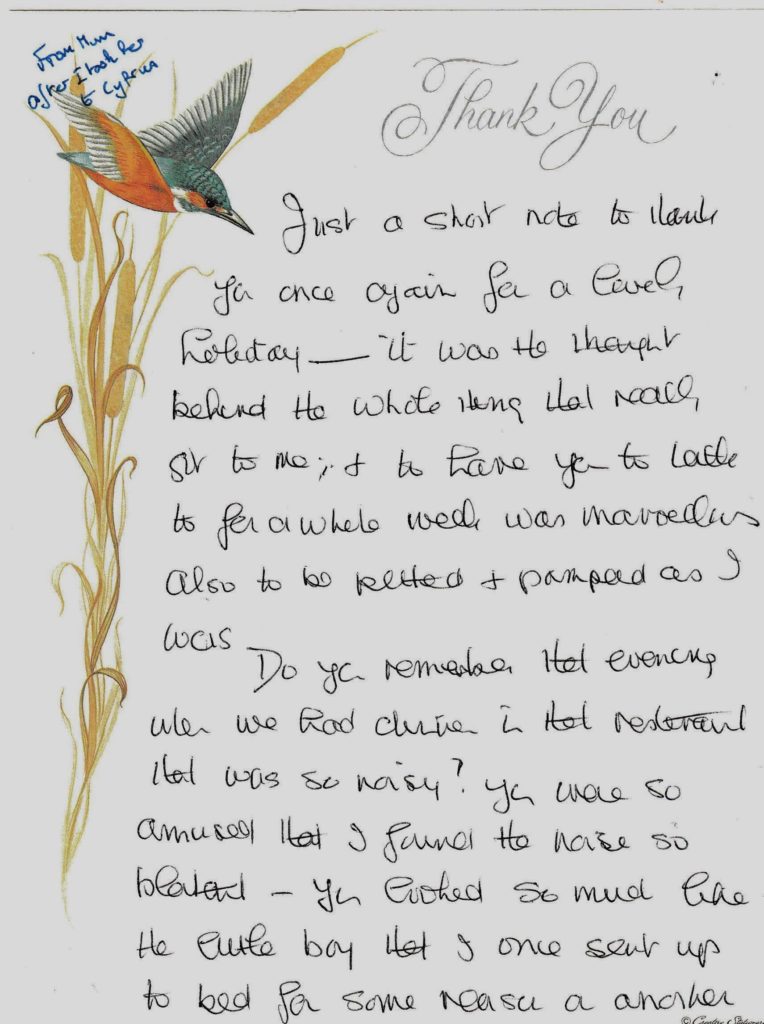 From Mum
after I took her
to Cyprus
Thank You
Just a short note to thank
you once again for a lovely
holiday — it was the thought
behind the whole thing that really
got to me; & to have you to talk
to for a whole week was marvellous
also to be petted & pampered as I
was
Do you remember that evening
when we had dinner in that restaurant
that was so noisy? You were so
amused that I found the noise so
blatant – you looked so much like
the little boy that I once sent up
to bed for some reason or another
© Creative Stationery